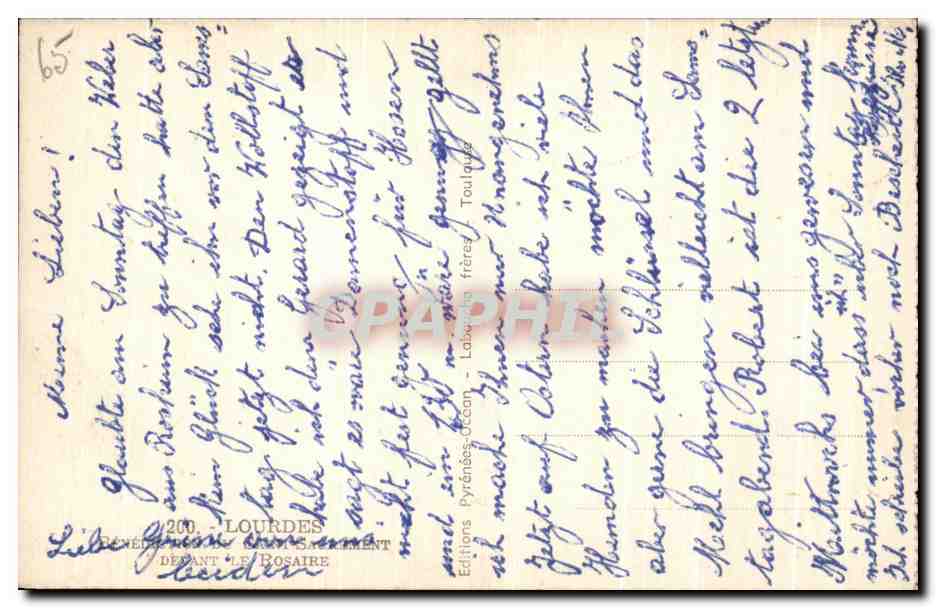 65
Meine Lieben!
Glaubte am Sonntag den Keller
aus Rosheim zu treffen hatte aber
kein Glück sehe ihn vor den Sams=
tag jetzt nicht. Den Wollstoff
habe ich dem Gerard gezeigt er
sagt es wäre Damenstoff und
nicht fest genug für Hosen
und im für wäre genug gellt
ich mache Ihnen nur Unangenehms
Jetzt auf Ostern habe ich viele
Hemden zu machen möchte Ihnen
aber gerne die Schlüssel und das
Mehl bringen vielleicht am Sams=
tagabend. Robert ist die 2 letzte
Mittwochs bei uns gewesen und
möchte immer dass ich Samstag komm
Ich schreibe vorher noch Bescheid
Liebe Grüsse von uns
beiden
200. - LOURDES
BÉNÉDICTION DU SAINT SACREMENT
DEVANT LE ROSAIRE
Editions Pyrénées-Océan - Labouche frères - Toulouse
CPAPHIL